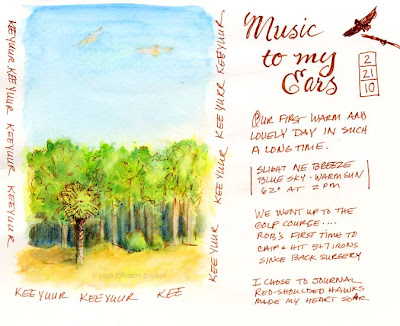 KEEYUUR KEEYUUR KEEYUUR KEEYUUR
KEEYUUR KEEYURR KEEYUUR KEEYUUR
KEEYUUR KEEYUUR KEE
Music
to my
Ears
2
21
10
OUR FIRST WARM AND
LOVELY DAY IN SUCH
A LONG TIME.
SLIGHT NE BREEZE
BLUE SKY - WARM SUN
62° AT 2 PM
WE WENT UP TO THE
GOLF COURSE....
ROB'S FIRST TIME TO
CHIP + HIT 5+7 IRONS
SINCE BACK SURGERY
I CHOSE TO JOURNAL
RED-SHOULDED HAWKS
MADE MY HEART SOAR